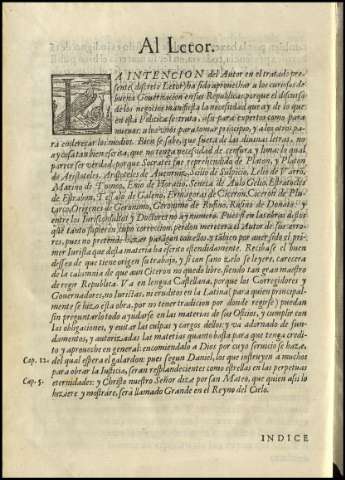 Al Letor.
LA INTENCION del Autor en el tratado pre-
sente (discreto Letor) ha sido aprovechar a los curiosos de
buena Governacion en sus Republicas: porque el discurso
de los negocios manifiesta la necesidad que ay de lo que
en esta Politica se trata, assi para expertos como para
nuevos: a los unos para tomar principio, y a los otros pa
ra enderezar los medios. Bien se sabe, que fuera de las divinas letras, no
ay cosa tan bien escrita, que no tenga necesidad de censura y lima: lo qual
parece ser verdad, porque Socrates fue reprehendido de Platon, y Platon
de Aristoteles, Aristoteles de Auerrois, Sulpicio, Lelio de Varro,
Marino de Tolomeo, Enio de Horatio, Seneca de Aulo Gelio, Estratocles
de Estrabon, Tessalo de Galeno, Ermagoras de Ciceron, Ciceron de Plu-
tarco, Origenes de Geronimo, Geronimo de Rufino, Rufino de Donato: y
entre los Iurisconsultos y Doctores no ay numero. Pues si en las obras destos
que tanto supieron cupo correccion, perdon mereceria el Autor de sus erro-
res, pues no pretende hazer
primer Iurista que desta materia ha escrito estendidamente. Recibase el buen
desseo de que tiene origen su trabajo, y si con sano zelo se leyere, carecerà
de la calumnia de que aun Ciceron no quedò libre, siendo tan gran maestro
de regir Republica. Va en lengua Castellana, porque los Corregidores y
Governadores, no Iuristas, ni eruditos en la Latina (para quien principal-
mente se hizo esta obra, por no tener tradicion por donde regirse) puedan
sin preguntarlo todo ayudarse en las materias de sus Oficios, y cumplir con
las obligaciones, y evitar las culpas y cargos dellos: y va adornado de fun-
damentos, y autorizadas las materias quanto basta para que tenga credito
y aproveche en general: encomiendolo a Dios por cuyo servicio se haze,
Cap. 12. del qual espera el galardon: pues segun Daniel, los que instruyen a muchos
para obrar la Iusticia, seran resplandecientes como estrellas en las perpetuas
Cap. 5. eternidades: y Christo nuestro Señor dize por san Mateo, que quien assi lo
hiziere y mostrare, serà llamado Grande en el Reyno del Cielo.
INDICE